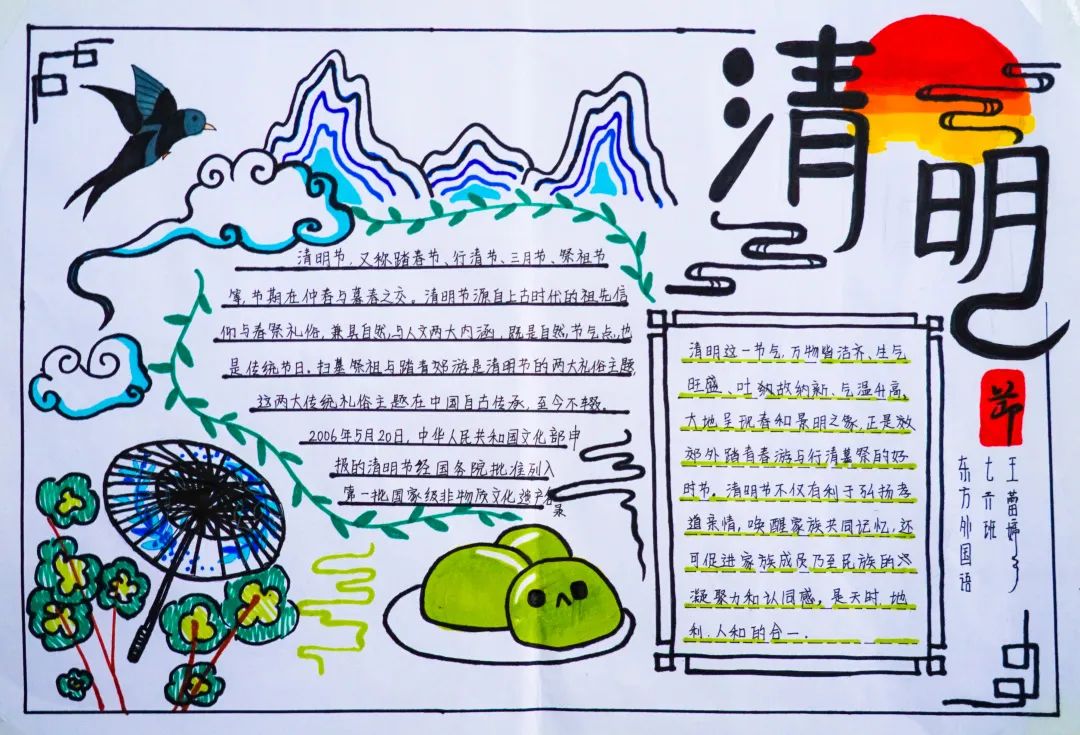 清明
节
清明节，又称踏春节、行清节、三月节、祭祖节
等，节期在仲春与暮春之交。清明节源自上古时代的祖先信
仰与春祭礼俗，兼具自然与人文两大内涵，既是自然节气点，也
是传统节日。扫墓祭祖与踏青郊游是清明节的两大礼俗主题，
这两大传统礼俗主题在中国自古传承，至今不辍。
2006年5月20日，中华人民共和国文化部申
报的清明节经国务院批准列入
第一批国家级非物质文化遗产名
录
清明这一节气，万物皆洁齐、生气
旺盛、吐故纳新、气温升高、
大地呈现春和景明之象，正是
郊外踏青春游与行清墓祭的好
时节。清明节不仅有利于弘扬孝
道亲情，唤醒家族共同记忆，还
可促进家族成员乃至民族的
凝聚力和认同感，是天时、地
利、人和的合一.
王蕾婷
七班
东方外国语